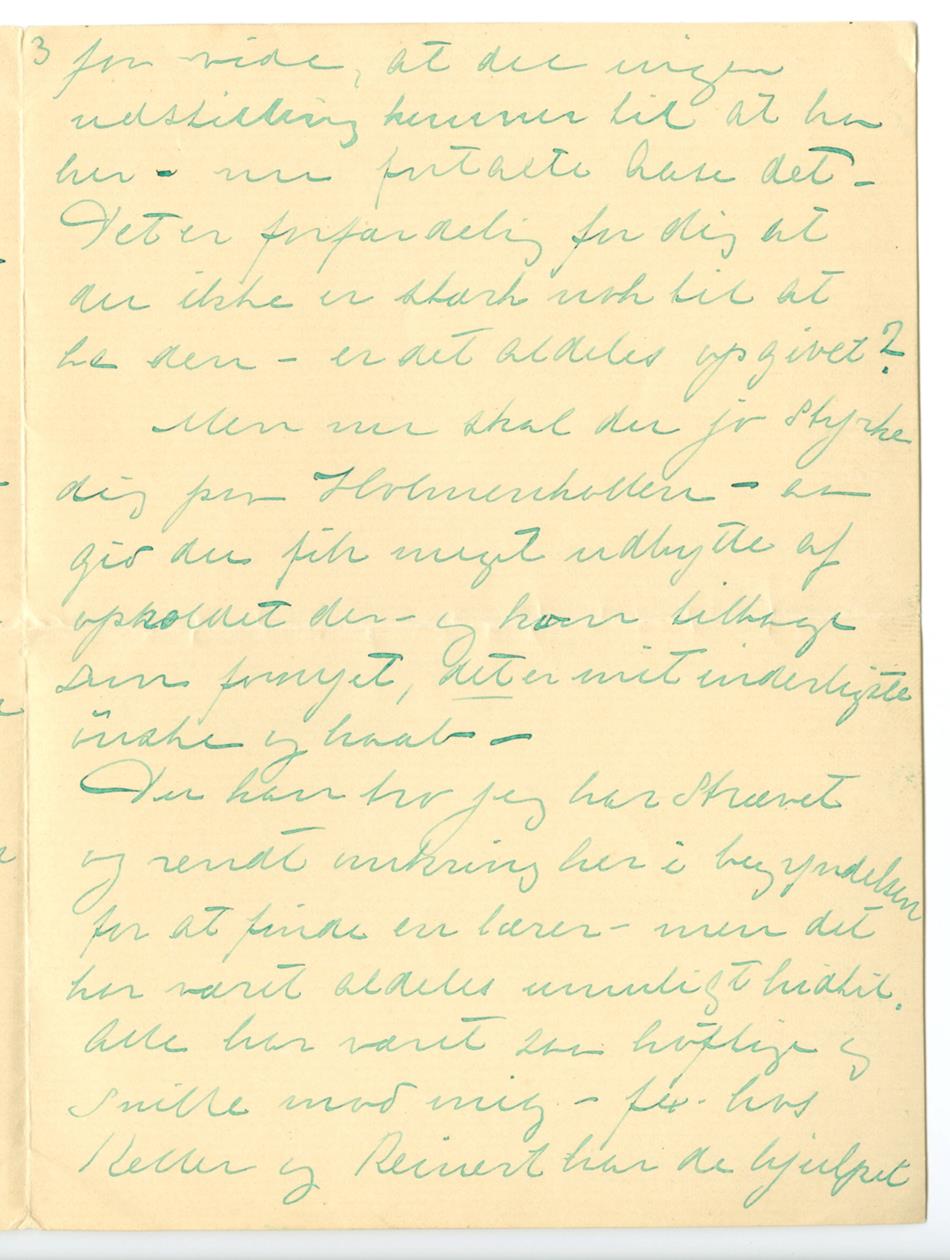 3 for vide, at du ingen
udstilling kommer til at ha
her - nu fortalte Aase det -
Det er forfærdelig for dig at
du ikke er stærk nok til at
ha den - er det aldeles opgivet?
Men nu skal du jo styrke
dig paa Holmenkollen - aa
gid du fik meget udbytte af
opholdet der - og kom tilbage
som fornyet, det er mit inderligste
önske og haab -
Du kan tro jeg har strævet
og rendt omkring her i begyndelsen
for at finde en lærer - men det
har været aldeles umuligt hidtil.
Alle har været saa höflige og
snille mod mig - f.ex. hos
Keller og Reinert har de hjulpet